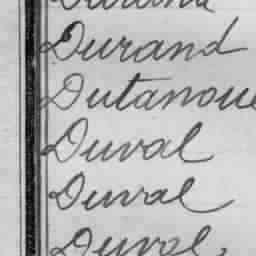 Durand
Durand
Dutanoue
Duval
Duval
Duval